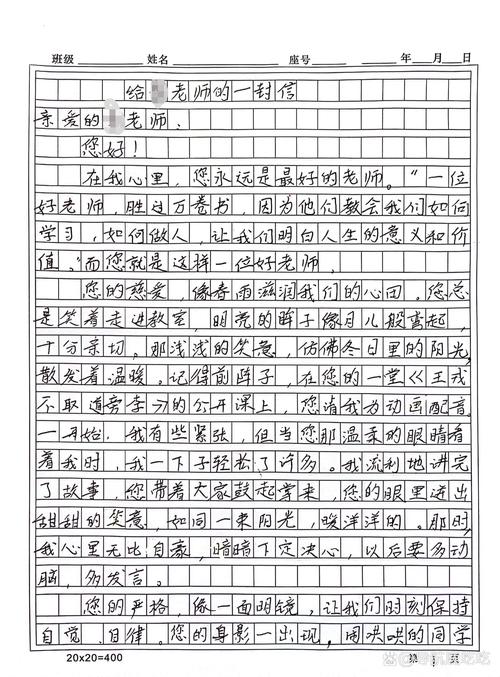 班级 姓名 座号 年 月 日
给 老师的一封信
亲爱的 老师:
您好!
在我心里,您永远是最好的老师。“一位
好老师,胜过万卷书,因为他们教会我们如何
学习,如何做人,让我们明白人生的意义和价
值。”而您就是这样一位好老师。
您的慈爱,像春雨滋润我们的心田。您总
是笑着走进教室,明亮的眸子像月儿般弯起,
十分亲切。那浅浅的笑意,仿佛冬日里的阳光,
散发着温暖。记得前阵子,在您的一堂《王戎
不取道旁李》的公开课上,您请我为动画配音。
一开始,我有些紧张,但当您那温柔的眼睛看
着我时,我一下子轻松了许多。我流利地讲完
了故事,您带着大家鼓起掌来,您的眼里迸出
甜甜的笑意,如同一束阳光,暖洋洋的。那时,
我心里无比自豪,暗暗下定决心,以后要多动
脑,多发言。
您的严格,像一面明镜,让我们时刻保持
自觉、自律。您的身影一出现,闹哄哄的同学
20×20=400 第 1 页